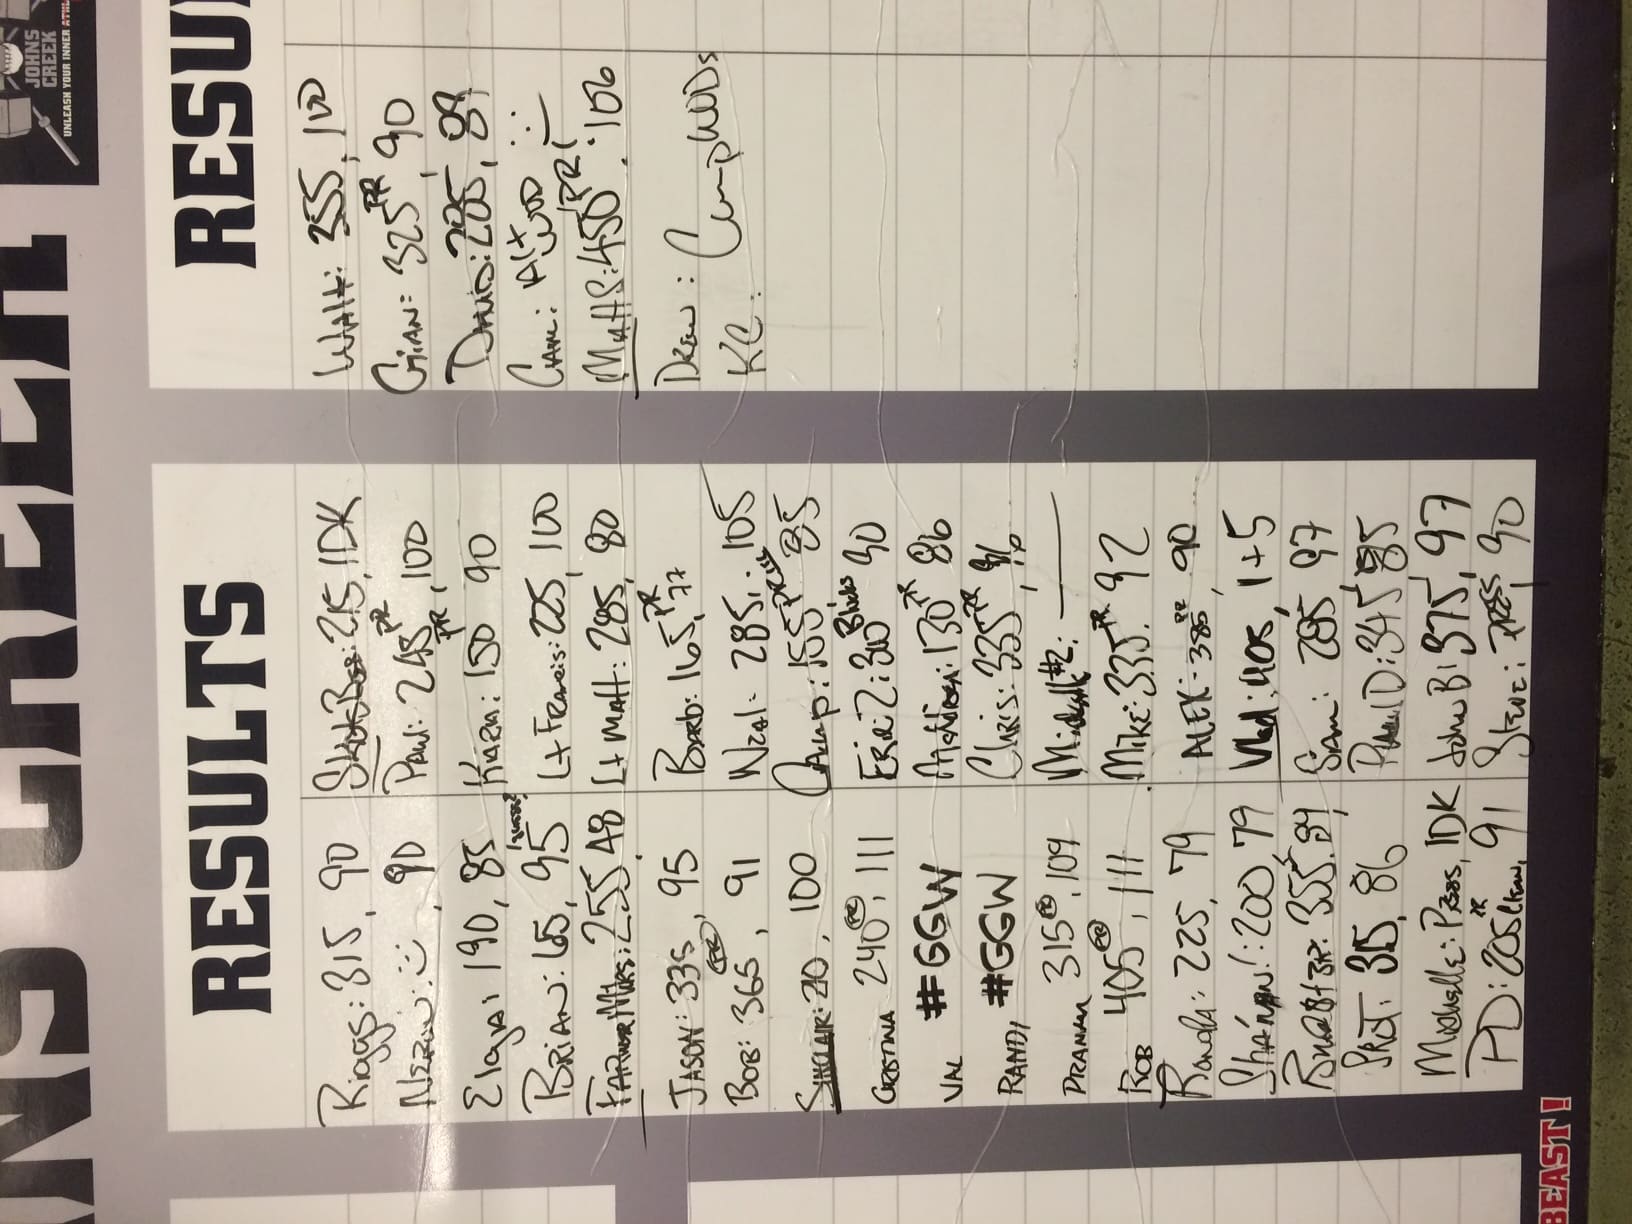 JOHNS
CREEK
UNLEASH YOUR INNER
RESULTS
Riggs: 315, 90
, 90
Elaya: 190, 85
BRIAN: 165, 95
255, 48
JASON: 335, 95
BOB: 365 PR, 91
SINCLAIR: 210, 100
CRISTINA 240 PR, 111
VAL #GGW
RANDI #GGW
PRANAM 315 PR, 109
ROB 405 PR, 111
Ronda: 225, 79
Shannan!: 200, 79
355, 89
PROT: 315, 86
Michelle: PR225, IDK
PD: 205 Clean PR, 91
215, IDK
Paul: 245 PR, 100
Karm: 150 PR, 90
Lt Francis: 225, 100
Lt Matt: 285, 80
Barb: 165 PR, 77
Neal: 285, 105
Camp: 155 PR!!!, 85
Eric Z: 300 Blocks 90
Andrea: 130 PR 86
Chris: 335 PR, 91
Michelle #2:
Mike: 335 PR, 92
ALEX: 385 PR, 90
Vlad: 405, 1+5
Siam: 285 97
Paul D: 345, 85
John B: 375, 97
Steve: 90
RESU
Walt: 355, 100
Gian: 325 PR, 90
David: 205, 89
Cam: Alt WOD :
Matt S: 450 PR! : 106
Drew: Comp WODs
KC:
BEAST!